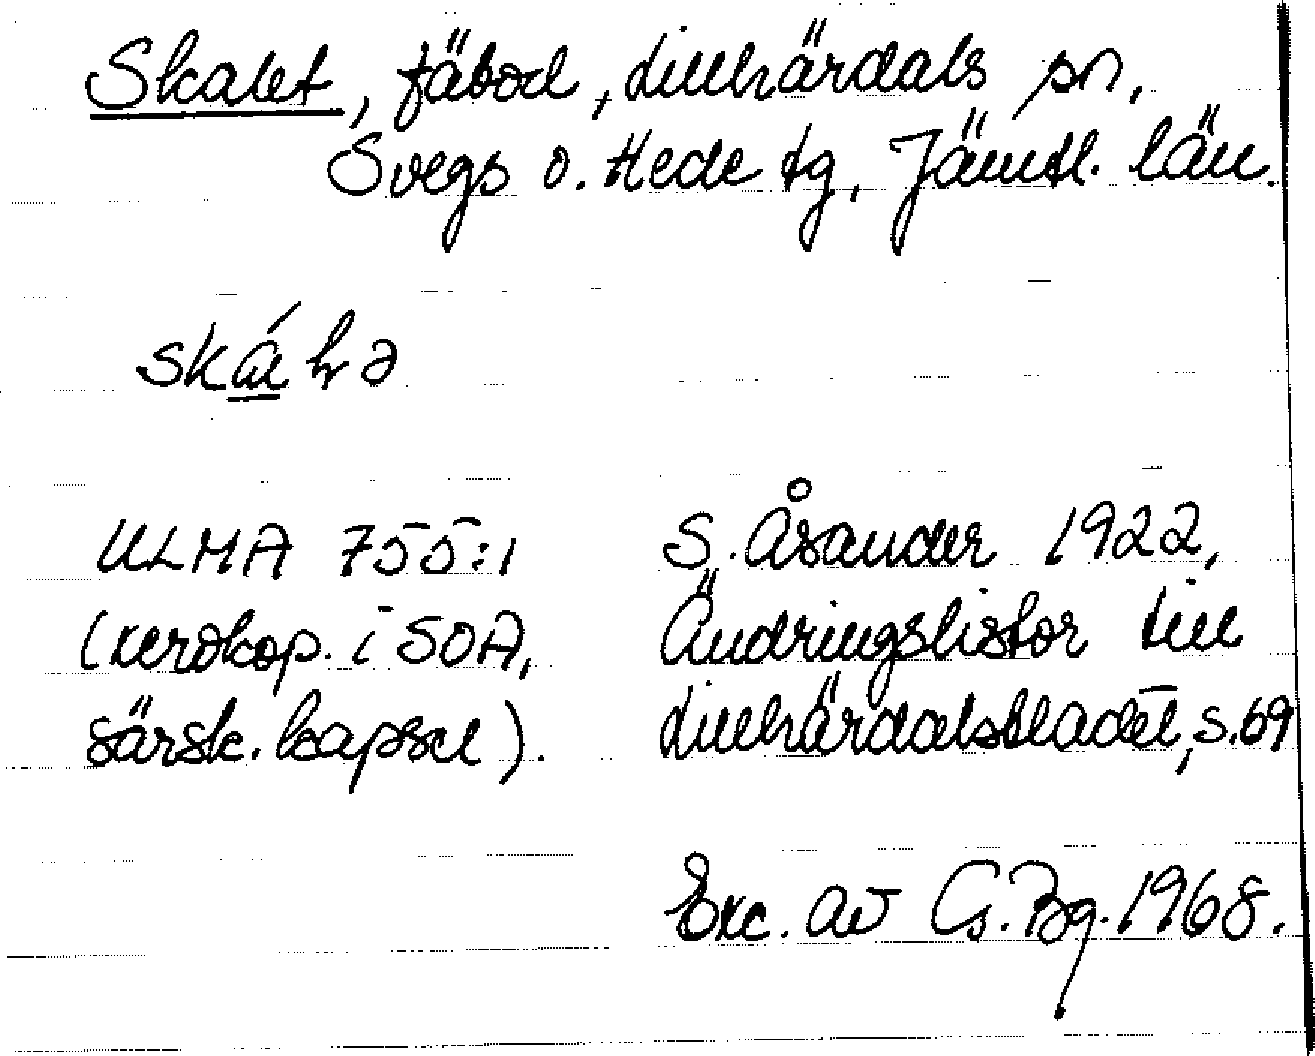 Skalet, fäbod, Lillhärdals sn,
Svegs o. Hede tg, Jämtl. län.
ULMA 755:1
(xerokop. i SOA,
särsk. kapsel).
S. Åsander 1922,
Ändringslistor till
Lillhärdalsbladet, s. 69
Exc. av G. Bg. 1968.